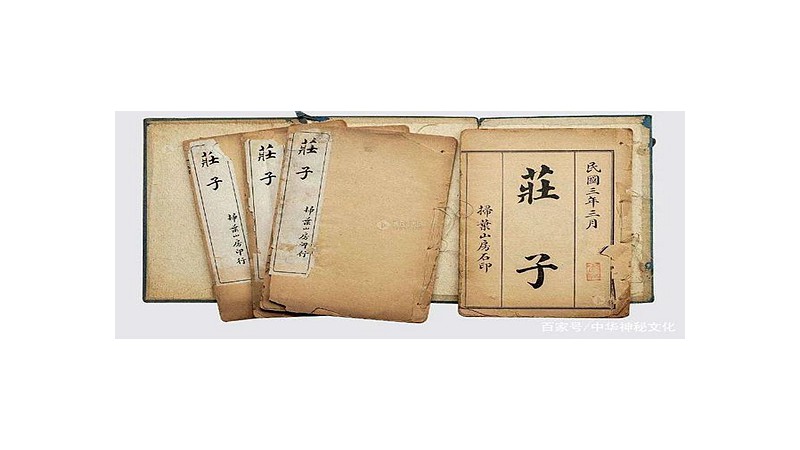 莊子
掃葉山房印行
莊子
掃葉山房印行
莊子
掃葉山房印行
民國三年三月
莊子
掃葉山房石印
百家号/中华神秘文化